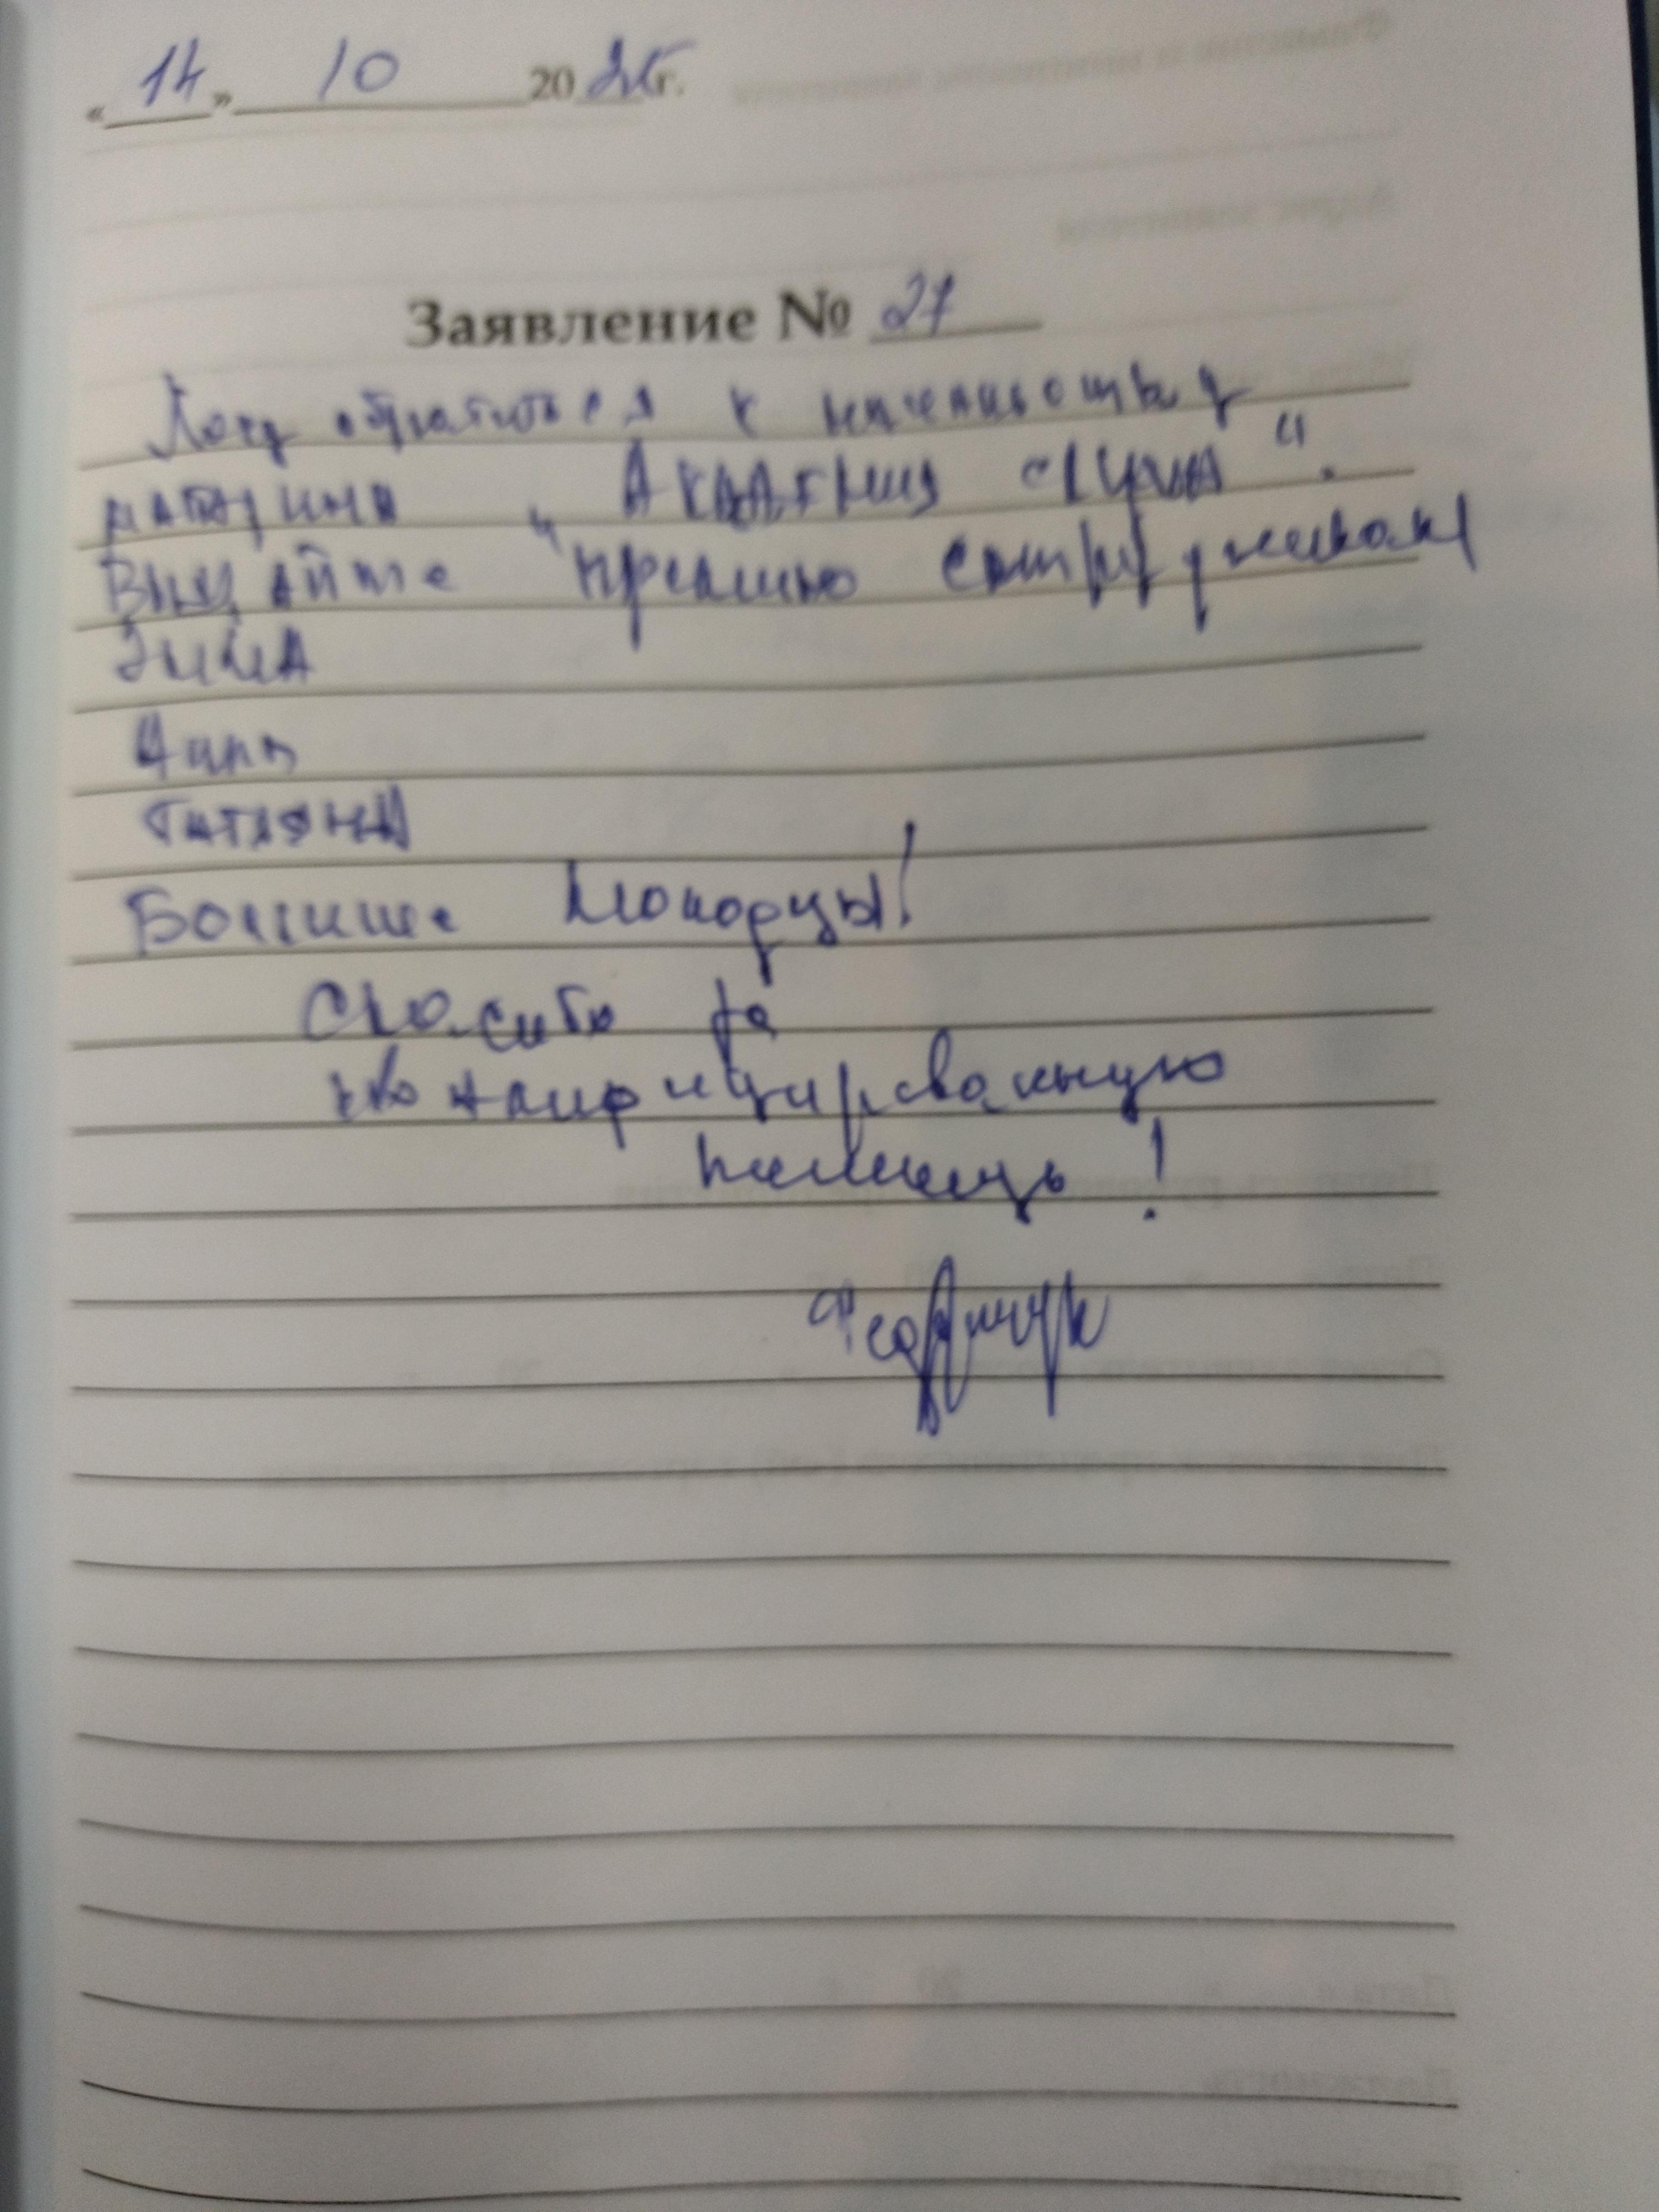 «14» 10 2025г.
Заявление № 27
Хочу обратиться к начальству
магазина "Академия слуха".
Выдайте премию сотрудникам
Эмма
Анна
Татьяна
Большие молодцы!
Спасибо за
квалифицированную
помощь!